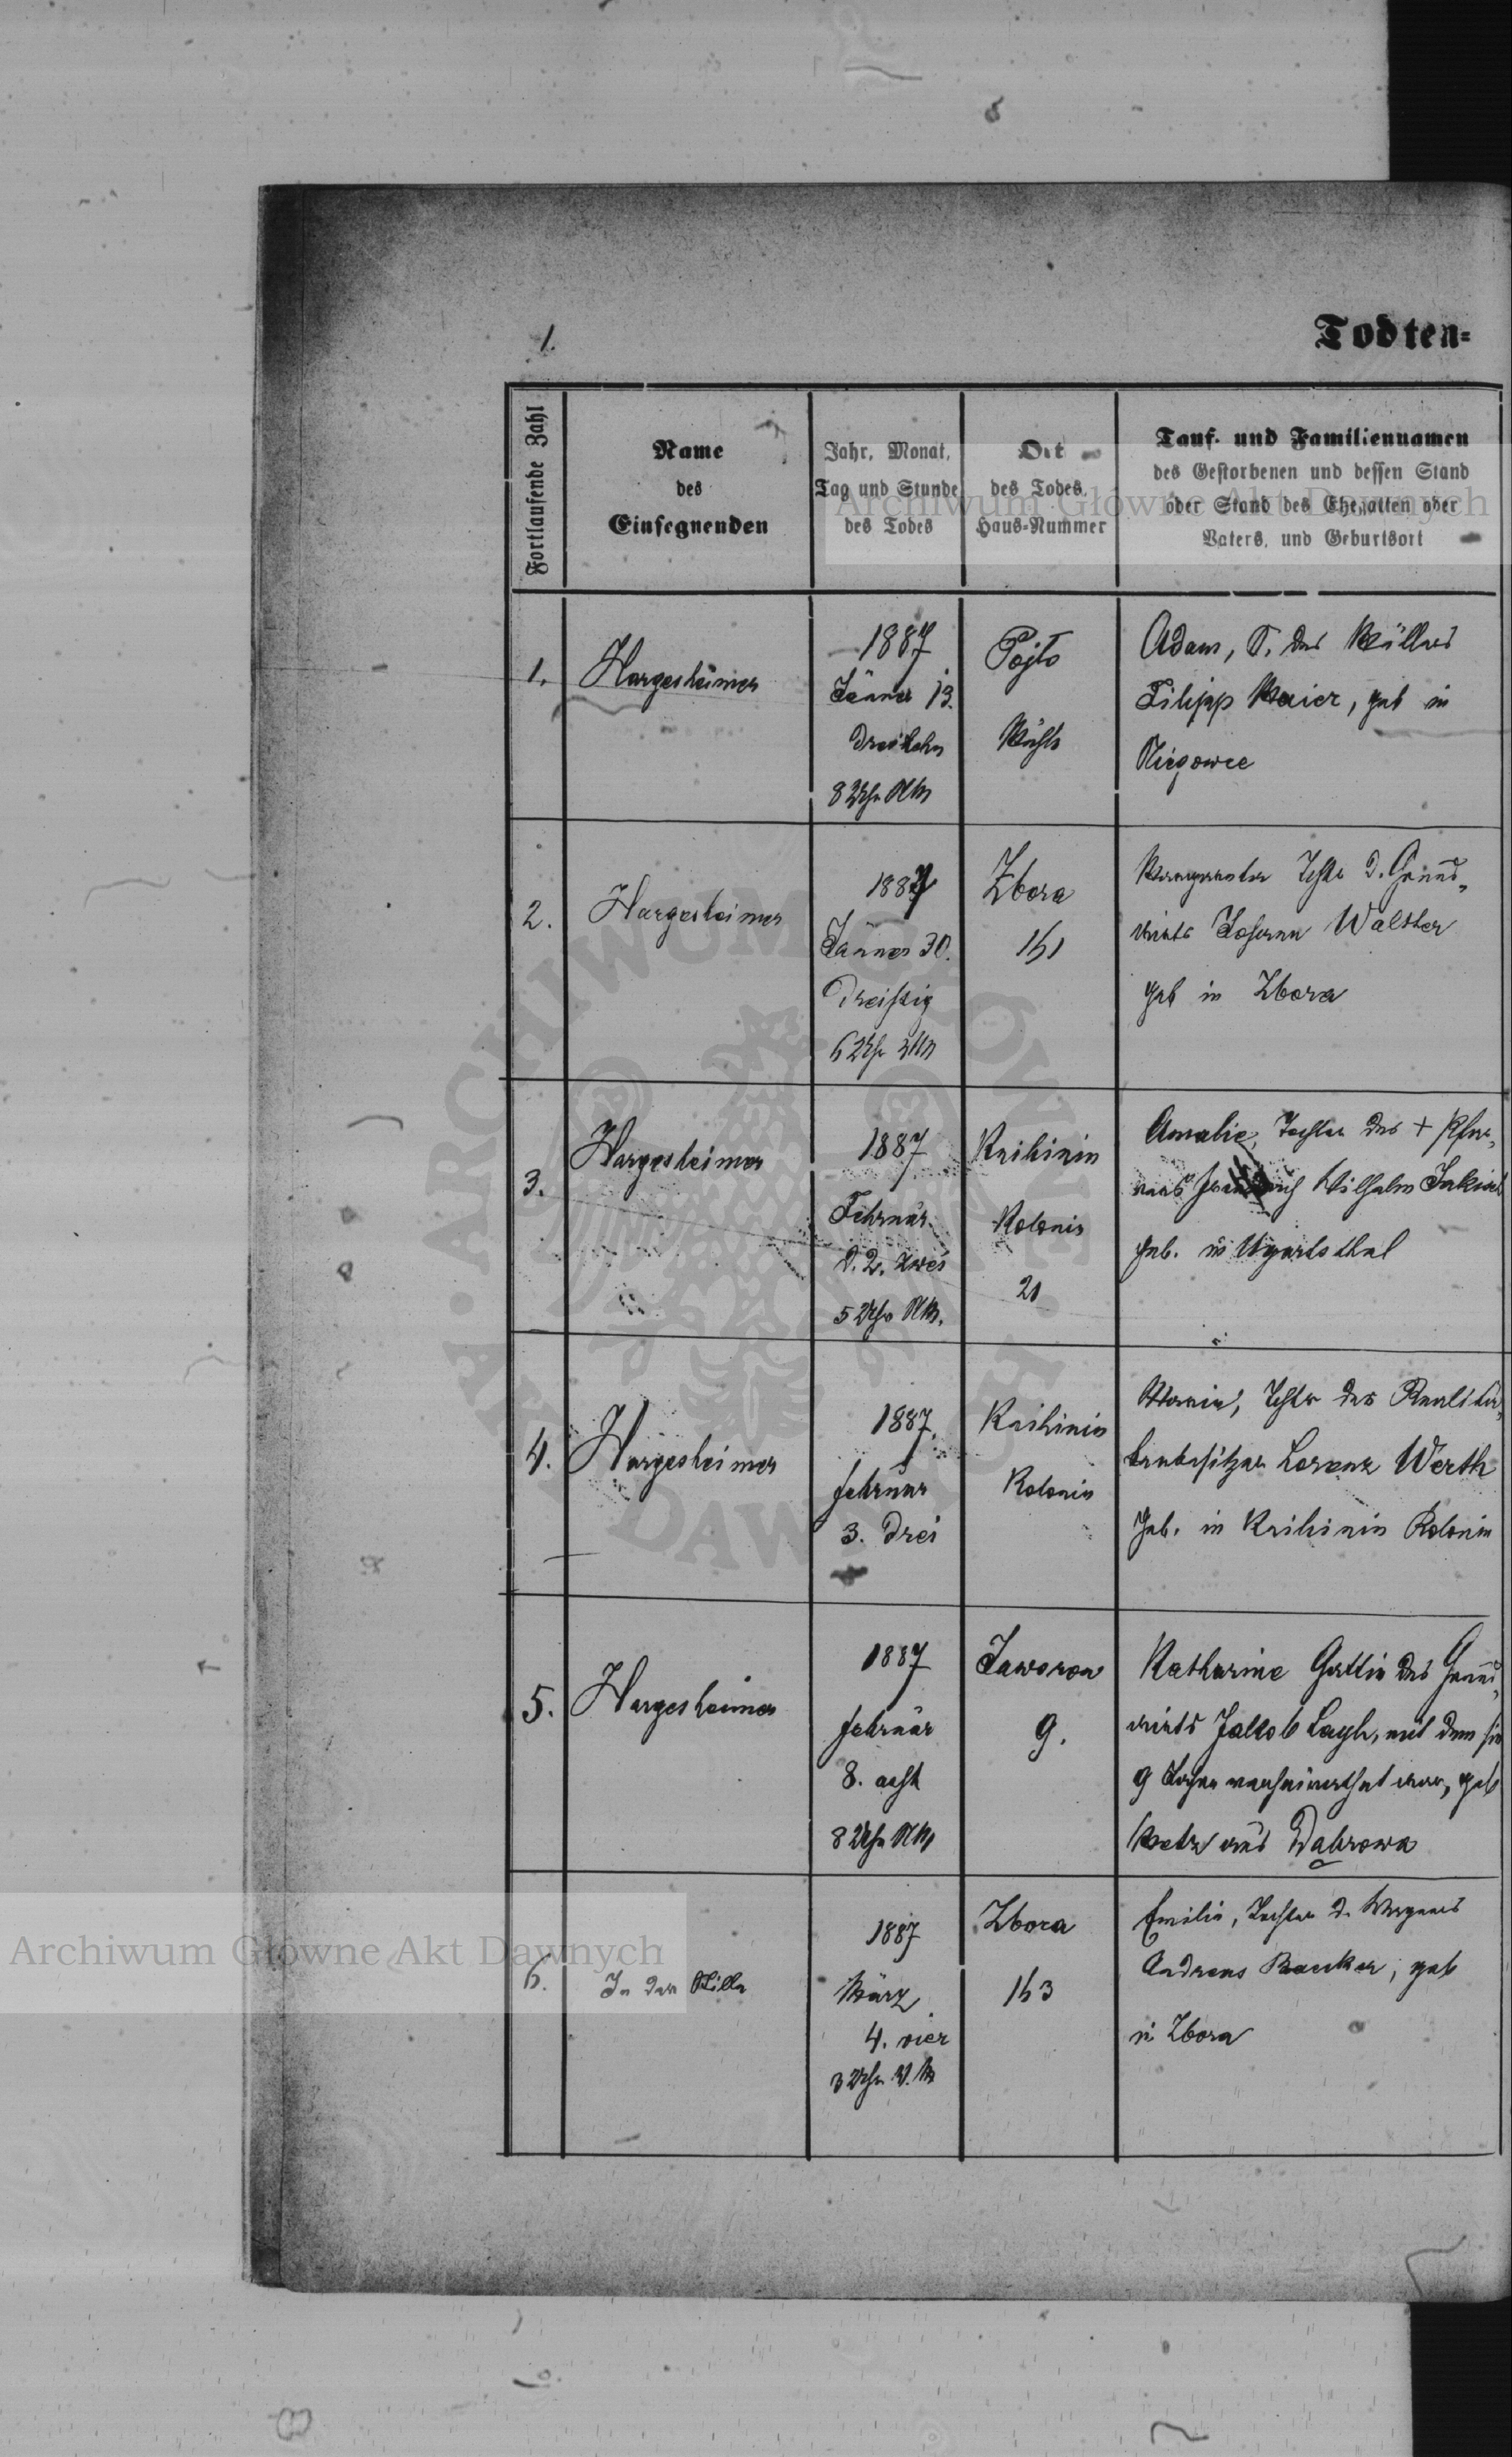 1.
Todten=
Fortlaufende Zahl
Name
des
Einsegnenden
Jahr, Monat,
Tag und Stunde
des Todes
Ort
des Todes,
Haus=Nummer
Tauf- und Familiennamen
des Gestorbenen und dessen Stand
oder Stand des Ehegatten oder
Vaters, und Geburtsort
1.
Hargesheimer
1887
Jänner 13.
dreizehn
8 Uhr NM
Pojło
Mühle
Adam, S. des Müllers
Filipp Maier, geb in
Niegowce
2.
Hargesheimer
1887
Jänner 30.
Dreißig
6 Uhr
Zbora
151
Margaretha Tchtr d. Grund=
wirts Johann Walther
geb in Zbora
3.
Hargesheimer
1887
Februar
d. 2. zwei
5 Uhr NM.
Knihinin
Kolonie
21
Amalie, Tochter des + Pfar=
rers Wilhelm
geb. in Ugartsthal
4.
Hargesheimer
1887.
Februar
3. drei
Knihinin
Kolonie
Maria, Tchtr des Realitä=
tenbesitzer Lorenz Werth
geb. in Knihinin Kolonie
5.
Hargesheimer
1887
Februar
8. acht
8 Uhr NM
Jaworow
9.
Katharine Gattin des Grund=
wirts Jakob Layh, mit dem sie
9 Jahre verheirathet war, geb
aus Dabrowa
6.
In der Stille
1887
März
4. vier
3 Uhr V.M
Zbora
153
Emilie, Tochter d. Wagners
Andreas Baecker, geb
in Zbora
Archiwum Główne Akt Dawnych
Archiwum Główne Akt Dawnych
ARCHIWUM GŁÓWNE AKT DAWNYCH